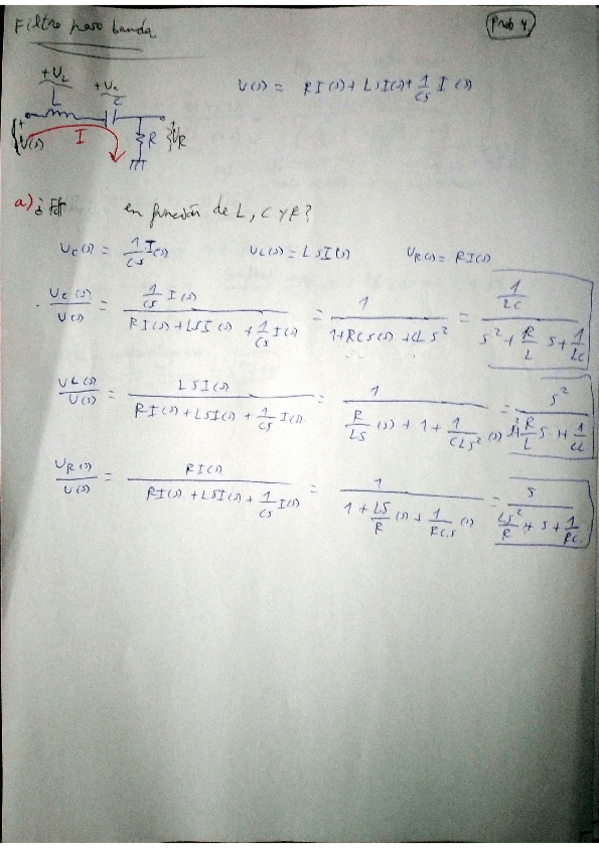 Filtro paso banda
Prob 4
+UL
L
+Uc
C
V(s)
I
R
UR
V(s) = RI(s) + LSI(s) + 1/CS I(s)
a) ¿ en función de L, C y R?
Uc(s) = 1/CS I(s)
UL(s) = LSI(s)
UR(s) = RI(s)
Uc(s)/U(s) = 1/CS I(s) / RI(s)+LSI(s)+1/CS I(s) = 1 / 1+RCS(s)+CLS² = 1/LC / S²+R/L S+1/LC
UL(s)/U(s) = LSI(s) / RI(s)+LSI(s)+1/CS I(s) = 1 / R/LS (s)+1+1/CLS² (s) = S² / R/L S + 1/CL
UR(s)/U(s) = RI(s) / RI(s)+LSI(s)+1/CS I(s) = 1 / 1+LS/R (s)+1/RCS (s) = S / LS²/R+S+1/RC